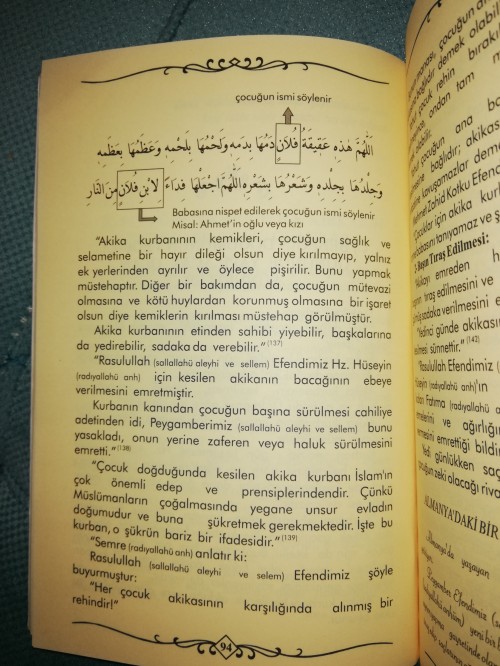 çocuğun ismi söylenir
اَللّٰهُمَّ هٰذِهِ عَقِيقَةُ فُلَانٍ دَمُهَا بِدَمِهِ وَلَحْمُهَا بِلَحْمِهِ وَعَظْمُهَا بِعَظْمِهِ
وَجِلْدُهَا بِجِلْدِهِ وَشَعْرُهَا بِشَعْرِهِ اَللّٰهُمَّ اجْعَلْهَا فِدَاءً لِابْنِ فُلَانٍ مِنَ النَّارِ
Babasına nispet edilerek çocuğun ismi söylenir
Misal: Ahmet'in oğlu veya kızı
"Akika kurbanının kemikleri, çocuğun sağlık ve
selametine bir hayır dileği olsun diye kırılmayıp, yalnız
ek yerlerinden ayrılır ve öylece pişirilir. Bunu yapmak
müstehaptır. Diğer bir bakımdan da, çocuğun mütevazi
olmasına ve kötü huylardan korunmuş olmasına bir işaret
olsun diye kemiklerin kırılması müstehap görülmüştür.
Akika kurbanının etinden sahibi yiyebilir, başkalarına
da yedirebilir, sadaka da verebilir." [137]
"Rasulullah (sallallahü aleyhi ve sellem) Efendimiz Hz. Hüseyin
(radıyallahü anh) için kesilen akikanın bacağının ebeye
verilmesini emretmiştir.
Kurbanın kanından çocuğun başına sürülmesi cahiliye
adetinden idi, Peygamberimiz (sallallahü aleyhi ve sellem) bunu
yasakladı, onun yerine zaferen veya haluk sürülmesini
emretti." [138]
"Çocuk doğduğunda kesilen akika kurbanı İslam'ın
çok önemli edep ve prensiplerindendir. Çünkü
Müslümanların çoğalmasında yegane unsur evladın
doğumudur ve buna şükretmek gerekmektedir. İşte bu
kurban, o şükrün bariz bir ifadesidir." [139]
"Semre (radıyallahü anh) anlatır ki:
Rasulullah (sallallahü aleyhi ve selem) Efendimiz şöyle
buyurmuştur:
"Her çocuk akikasının karşılığında alınmış bir
rehindir!"
94
manası, çocuğun
bağlıdır demek olabilir
çocuk rehin bırakıl
ondan tam
çocuğun ana ba
bağlıdır; akikası
kavuşamazlar deme
Mehmet Zahid Kotku Efend
"Çocuklar için akika kurb
babasını tanıyamaz ve ş
2- Başın Tıraş Edilmesi:
emreden h
tıraş edilmesini ve
sadaka verilmesini e
"Yedinci günde akikasın
sünnettir." [142]
"Rasulullah Efendimiz (s
Hüseyin (radıyallahü anh)'ın
Fatıma (radıyallahü anha)
ve ağırlığın
emrettiği bildir
Yedi günlükken saç
çocuğun zeki olacağı riva
ALMANYA'DAKİ BİR
Almanya'da yaşayan
Peygamber Efendimiz (s
yeni bir